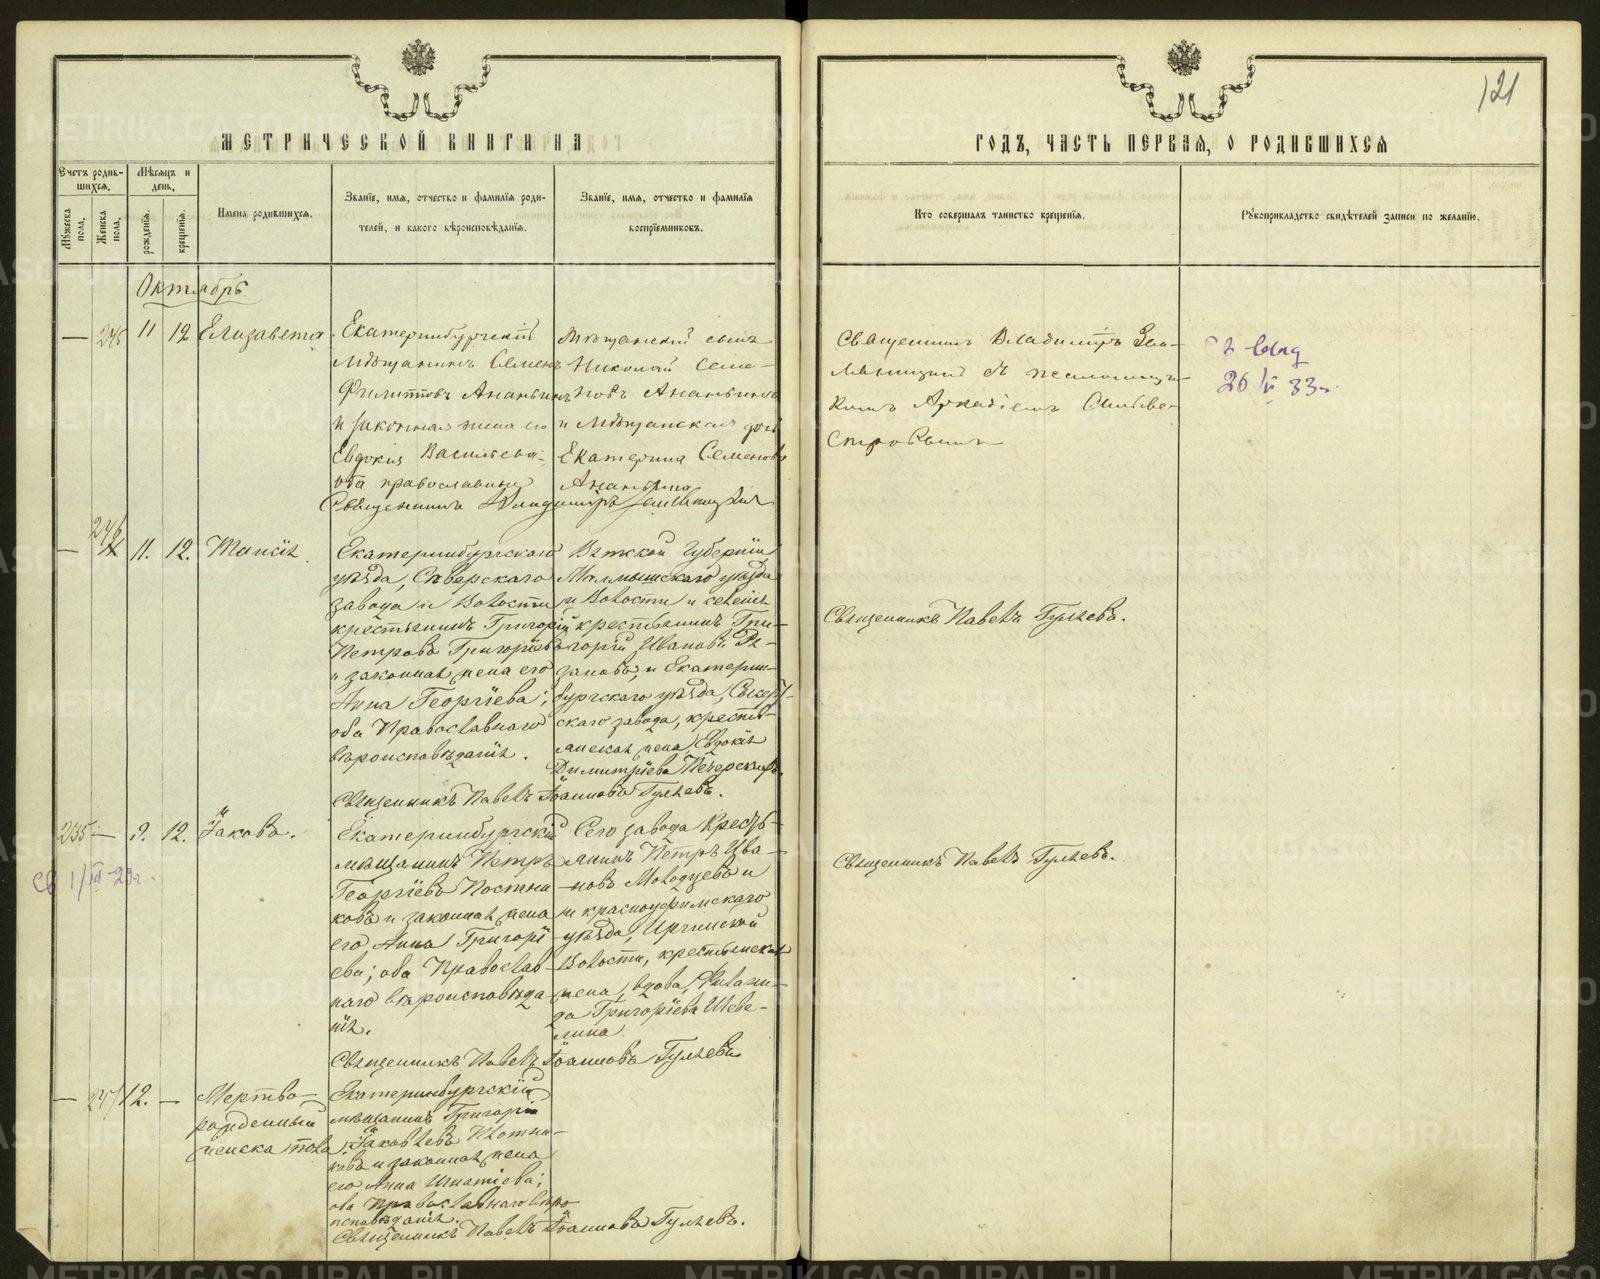 121
МЕТРИЧЕСКОЙ КНИГИ НА
ГОДЪ, ЧАСТЬ ПЕРВАЯ, О РОДИВШИХСЯ
Счетъ родив-
шихся.
Мужеска пола.
Женска пола.
Мѣсяцъ и
день.
рожденія.
крещенія.
Имена родившихся.
Званіе, имя, отчество и фамилія роди-
телей, и какого вѣроисповѣданія.
Званіе, имя, отчество и фамилія
воспріемниковъ.
Кто совершалъ таинство крещенія.
Рукоприкладство свидѣтелей записи по желанію.
Октябрь
— 245 11 12 Елизавета
Екатеринбургскій
мѣщанинъ Семенъ
Филипповъ Ананьинъ
и законная жена его
Евдокія Васильева
оба православные
Мѣщанскій сынъ
Николай Семе-
новъ Ананьинъ
и мѣщанская дочь
Екатерина Семенова
Ананьина
Священникъ Владиміръ Земляницынъ
Священникъ Владиміръ Зем-
ляницынъ съ псаломщи-
комъ Аркадіемъ Сильве-
стровымъ
26/V 33г.
— 246 11. 12. Таисія
Екатеринбургскаго
уѣзда, Сѣверскаго
завода и волости
крестьянинъ Григорій
Петровъ Григорьевъ
и законная жена его
Анна Георгіева;
оба Православнаго
вѣроисповѣданія.
Вятской губерніи
Малмышскаго уѣзда
и волости и селенія
крестьянинъ Гри-
горій Ивановъ Ре-
зановъ, и Екатерин-
бургскаго уѣзда, Сысерт-
скаго завода, крестья-
янская жена, Евдокія
Димитріева Печерскихъ.
Священникъ Павелъ Іоанновъ Гуляевъ.
Священникъ Павелъ Гуляевъ.
235 — 9. 12. Іаковъ.
Екатеринбургскій
мѣщанинъ Петръ
Георгіевъ Постни
ковъ и законная жена
его Анна Григорі
ева; оба Православ-
наго вѣроисповѣда
нія.
Сего завода кресть-
янинъ Петръ Ива-
новъ Молодцевъ и
и красноуфимскаго
уѣзда, Иргинской
волости, крестьянская
жена, вдова, Филаки-
да Григоріева Шеве-
лина
Священникъ Павелъ Іоанновъ Гуляевъ.
Священникъ Павелъ Гуляевъ.
— 247 12. — Мертво-
рожденный
женска пола
Екатеринбургскій
мѣщанинъ Григорій
Іаковлевъ Плотни-
ковъ и законная жена
его Анна Игнатіева;
оба Православнаго вѣро
исповѣданія.
Священникъ Павелъ Іоанновъ Гуляевъ.
METRIKI.GASO-URAL.RU